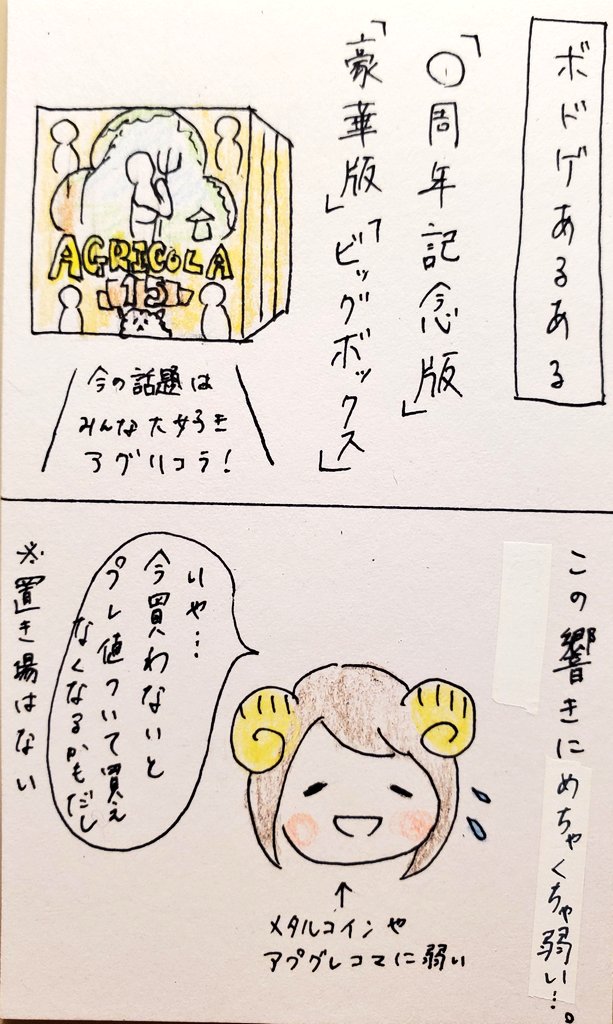 ボドゲあるある
「〇周年記念版」
「豪華版」「ビッグボックス」
AGRICOLA
15
今の話題は
みんな大好き
アグリコラ!
この響きにめちゃくちゃ弱い…。
いや…
今買わないと
プレ値ついて買え
なくなるかもだし
※置き場はない
↑
メタルコインや
アプグレコマに弱い